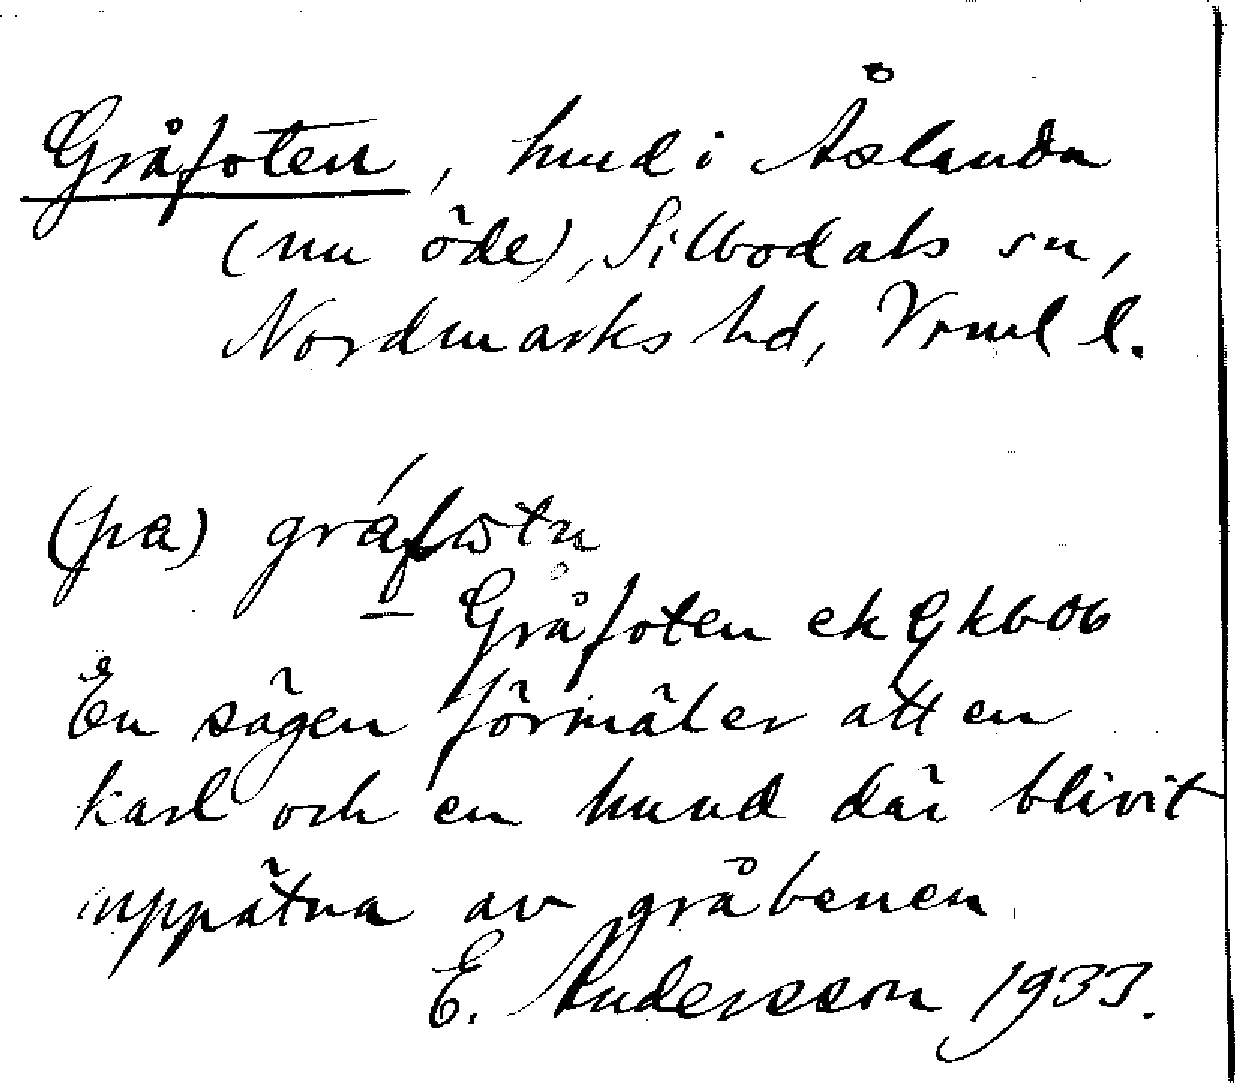 Gråfoten, hmd i Åslanda
(nu öde), Silbodals sn,
Nordmarks hd, Vrml l.
(pa)
Gråfoten ek
En sägen förmäler att en
karl och en hund där blivit
uppätna av gråbenen
E. Andersson 1933.